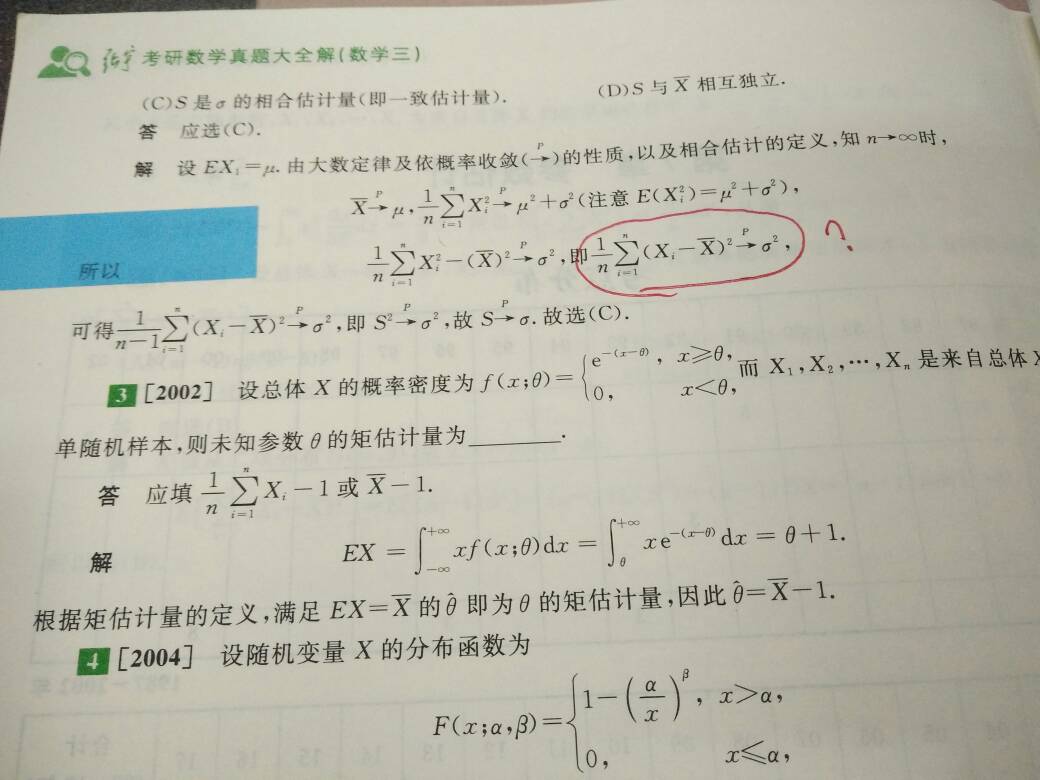 张宇 考研数学真题大全解(数学三)
(C)S 是 σ 的相合估计量(即一致估计量). (D)S 与 X̄ 相互独立.
答 应选(C).
解 设 EXᵢ=μ. 由大数定律及依概率收敛(→ᴾ)的性质,以及相合估计的定义,知 n→∞时,
X̄ →ᴾ μ, 1/n ∑ᵢ₌₁ⁿ Xᵢ² →ᴾ μ²+σ²(注意 E(Xᵢ²)=μ²+σ²),
所以 1/n ∑ᵢ₌₁ⁿ Xᵢ²-(X̄)² →ᴾ σ²,即 1/n ∑ᵢ₌₁ⁿ (Xᵢ-X̄)² →ᴾ σ², ?
可得 1/(n-1) ∑ᵢ₌₁ⁿ (Xᵢ-X̄)² →ᴾ σ²,即 S² →ᴾ σ²,故 S →ᴾ σ. 故选(C).
3 [2002] 设总体 X 的概率密度为 f(x;θ)={e^{-(x-θ)}, x≥θ, 0, x<θ, 而 X₁,X₂,⋯,Xₙ 是来自总体 X
单随机样本,则未知参数 θ 的矩估计量为________.
答 应填 1/n ∑ᵢ₌₁ⁿ Xᵢ-1 或 X̄-1.
解 EX = ∫_{-∞}^{+∞} xf(x;θ)dx = ∫_θ^{+∞} xe^{-(x-θ)} dx = θ+1.
根据矩估计量的定义,满足 EX=X̄ 的 θ̂ 即为 θ 的矩估计量,因此 θ̂=X̄-1.
4 [2004] 设随机变量 X 的分布函数为
F(x;α,β)={1-(α/x)^β, x>α, 0, x≤α,